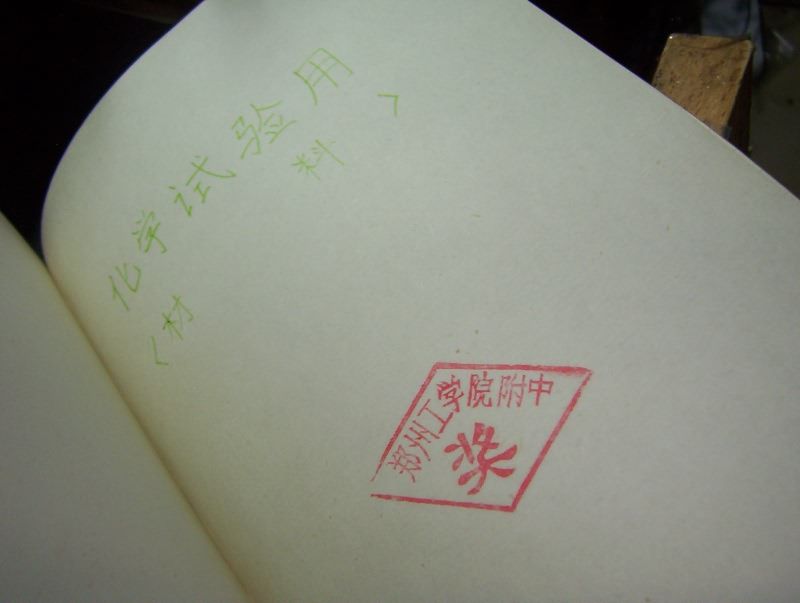 化学试验用
<材 料>
郑州工学院附中
奖